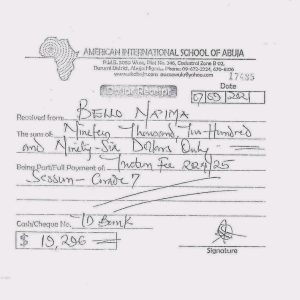 AMERICAN INTERNATIONAL SCHOOL OF ABUJA
Plot No. 346, Cadastral Zone B 02,
Durumi District, Abuja Nigeria. Phone:
17485
Dollar Receipt
Date
07 09
Received from BELLO NAIMA
The sum of Nineteen Thousand, Two Hundred
and Ninety-Six Dollars Only
Being Part/Full Payment of Tuition Fee 2024/25
Session - Grade 7
Cash/Cheque No. TD Bank
$ 19,296
Signature